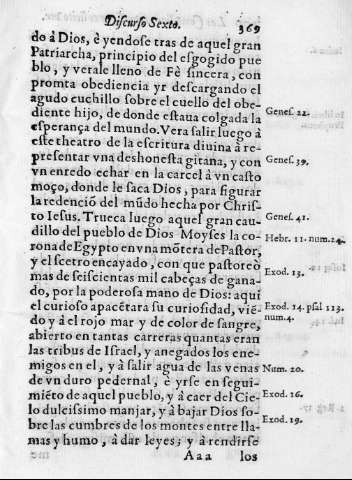 Discurso Sexto. 369
do à Dios, è yendose tras de aquel gran
Patriarcha, principio del esgogido pue
blo, y verale lleno de Fè sincera, con
promta obediencia yr descargando el
agudo cuchillo sobre el cuello del obe-
diente hijo, de donde estaua colgada la
esperança del mundo. Vera salir luego à
este theatro de la escritura diuina à re-
presentar vna deshonesta gitana, y con
vn enredo echar en la carcel à vn casto
moço, donde le saca Dios, para figurar
la redenció del múdo hecha por Chris-
to Iesus. Trueca luego aquel gran cau-
dillo del pueblo de Dios Moyses la co-
rona de Egypto en vna mõtera de Pastor,
y el scetro en cayado, con que pastoreò
mas de seiscientas mil cabeças de gana-
do, por la poderosa mano de Dios: aqui
el curioso apacétara su curiosidad, vié-
do y à el rojo mar y de color de sangre,
abierto en tantas carreras quantas eran
las tribus de Israel, y anegados los ene-
migos en el, y à salir agua de las venas
de vn duro pedernal, è yrse en segui-
miéto de aquel pueblo, y à caer del Cie-
lo dulcissimo manjar, y à bajar Dios so-
bre las cumbres de los montes entre lla-
mas y humo, à dar leyes; y à rendirse
Aaa los
Genes. 22.
Genes. 39.
Genes. 41.
Hebr. 11. num. 24.
Exod. 13.
Exod. 14. psal 113.
num. 4.
Num. 20.
Exod. 16.
Exod. 19.